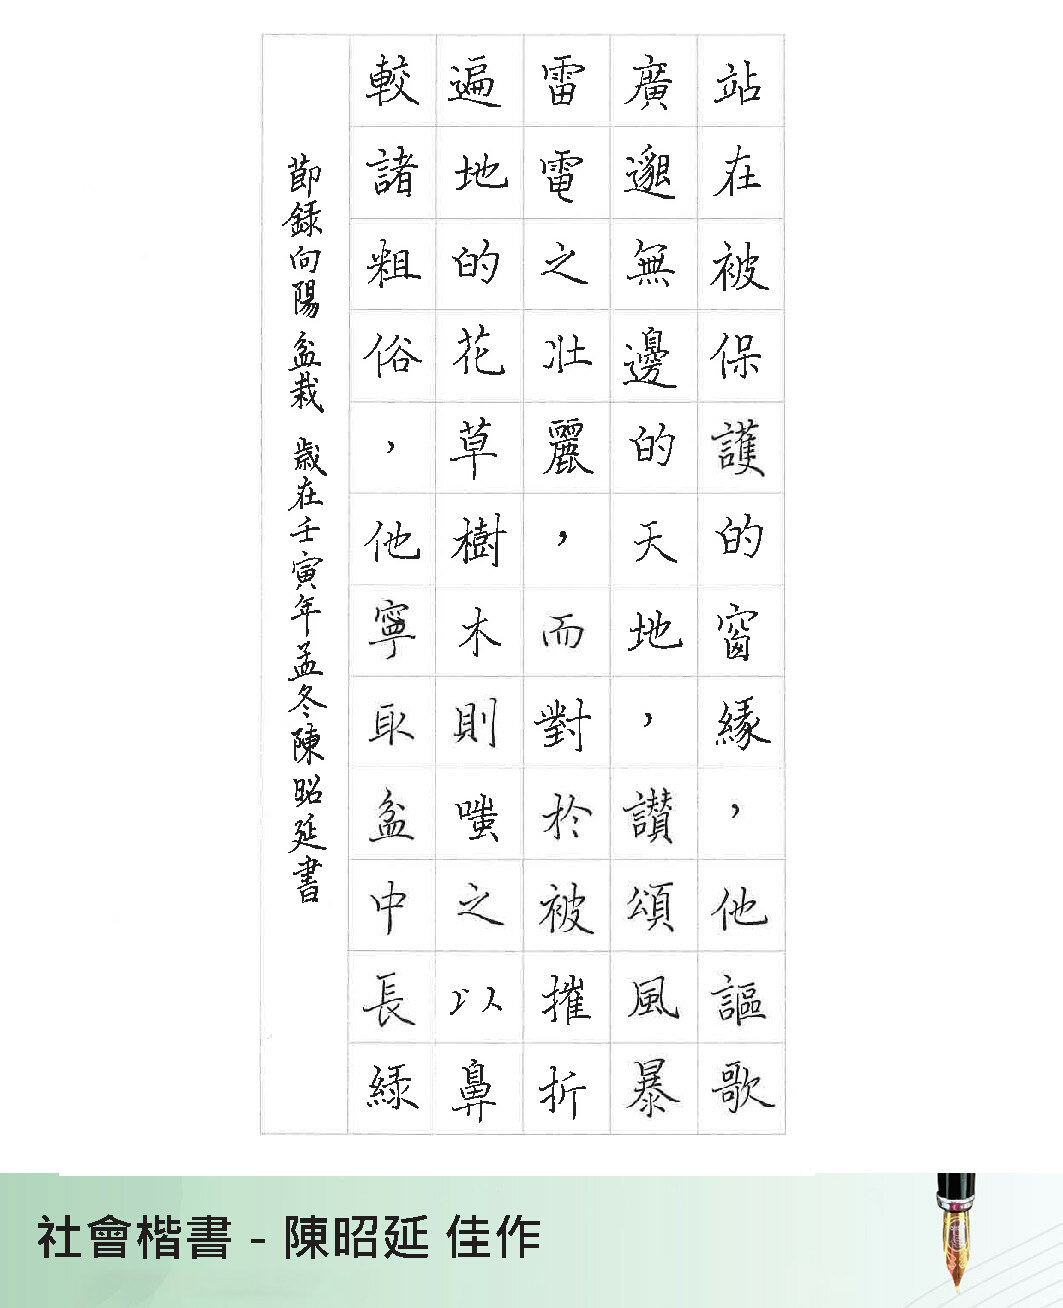 站在被保護的窗緣，他謳歌
廣邈無邊的天地，讚頌風暴
雷電之壯麗，而對於被摧折
遍地的花草樹木則嗤之以鼻
較諸粗俗，他寧取盆中長綠
節錄向陽盆栽 歲在壬寅年孟冬陳昭延書
社會楷書 - 陳昭延 佳作